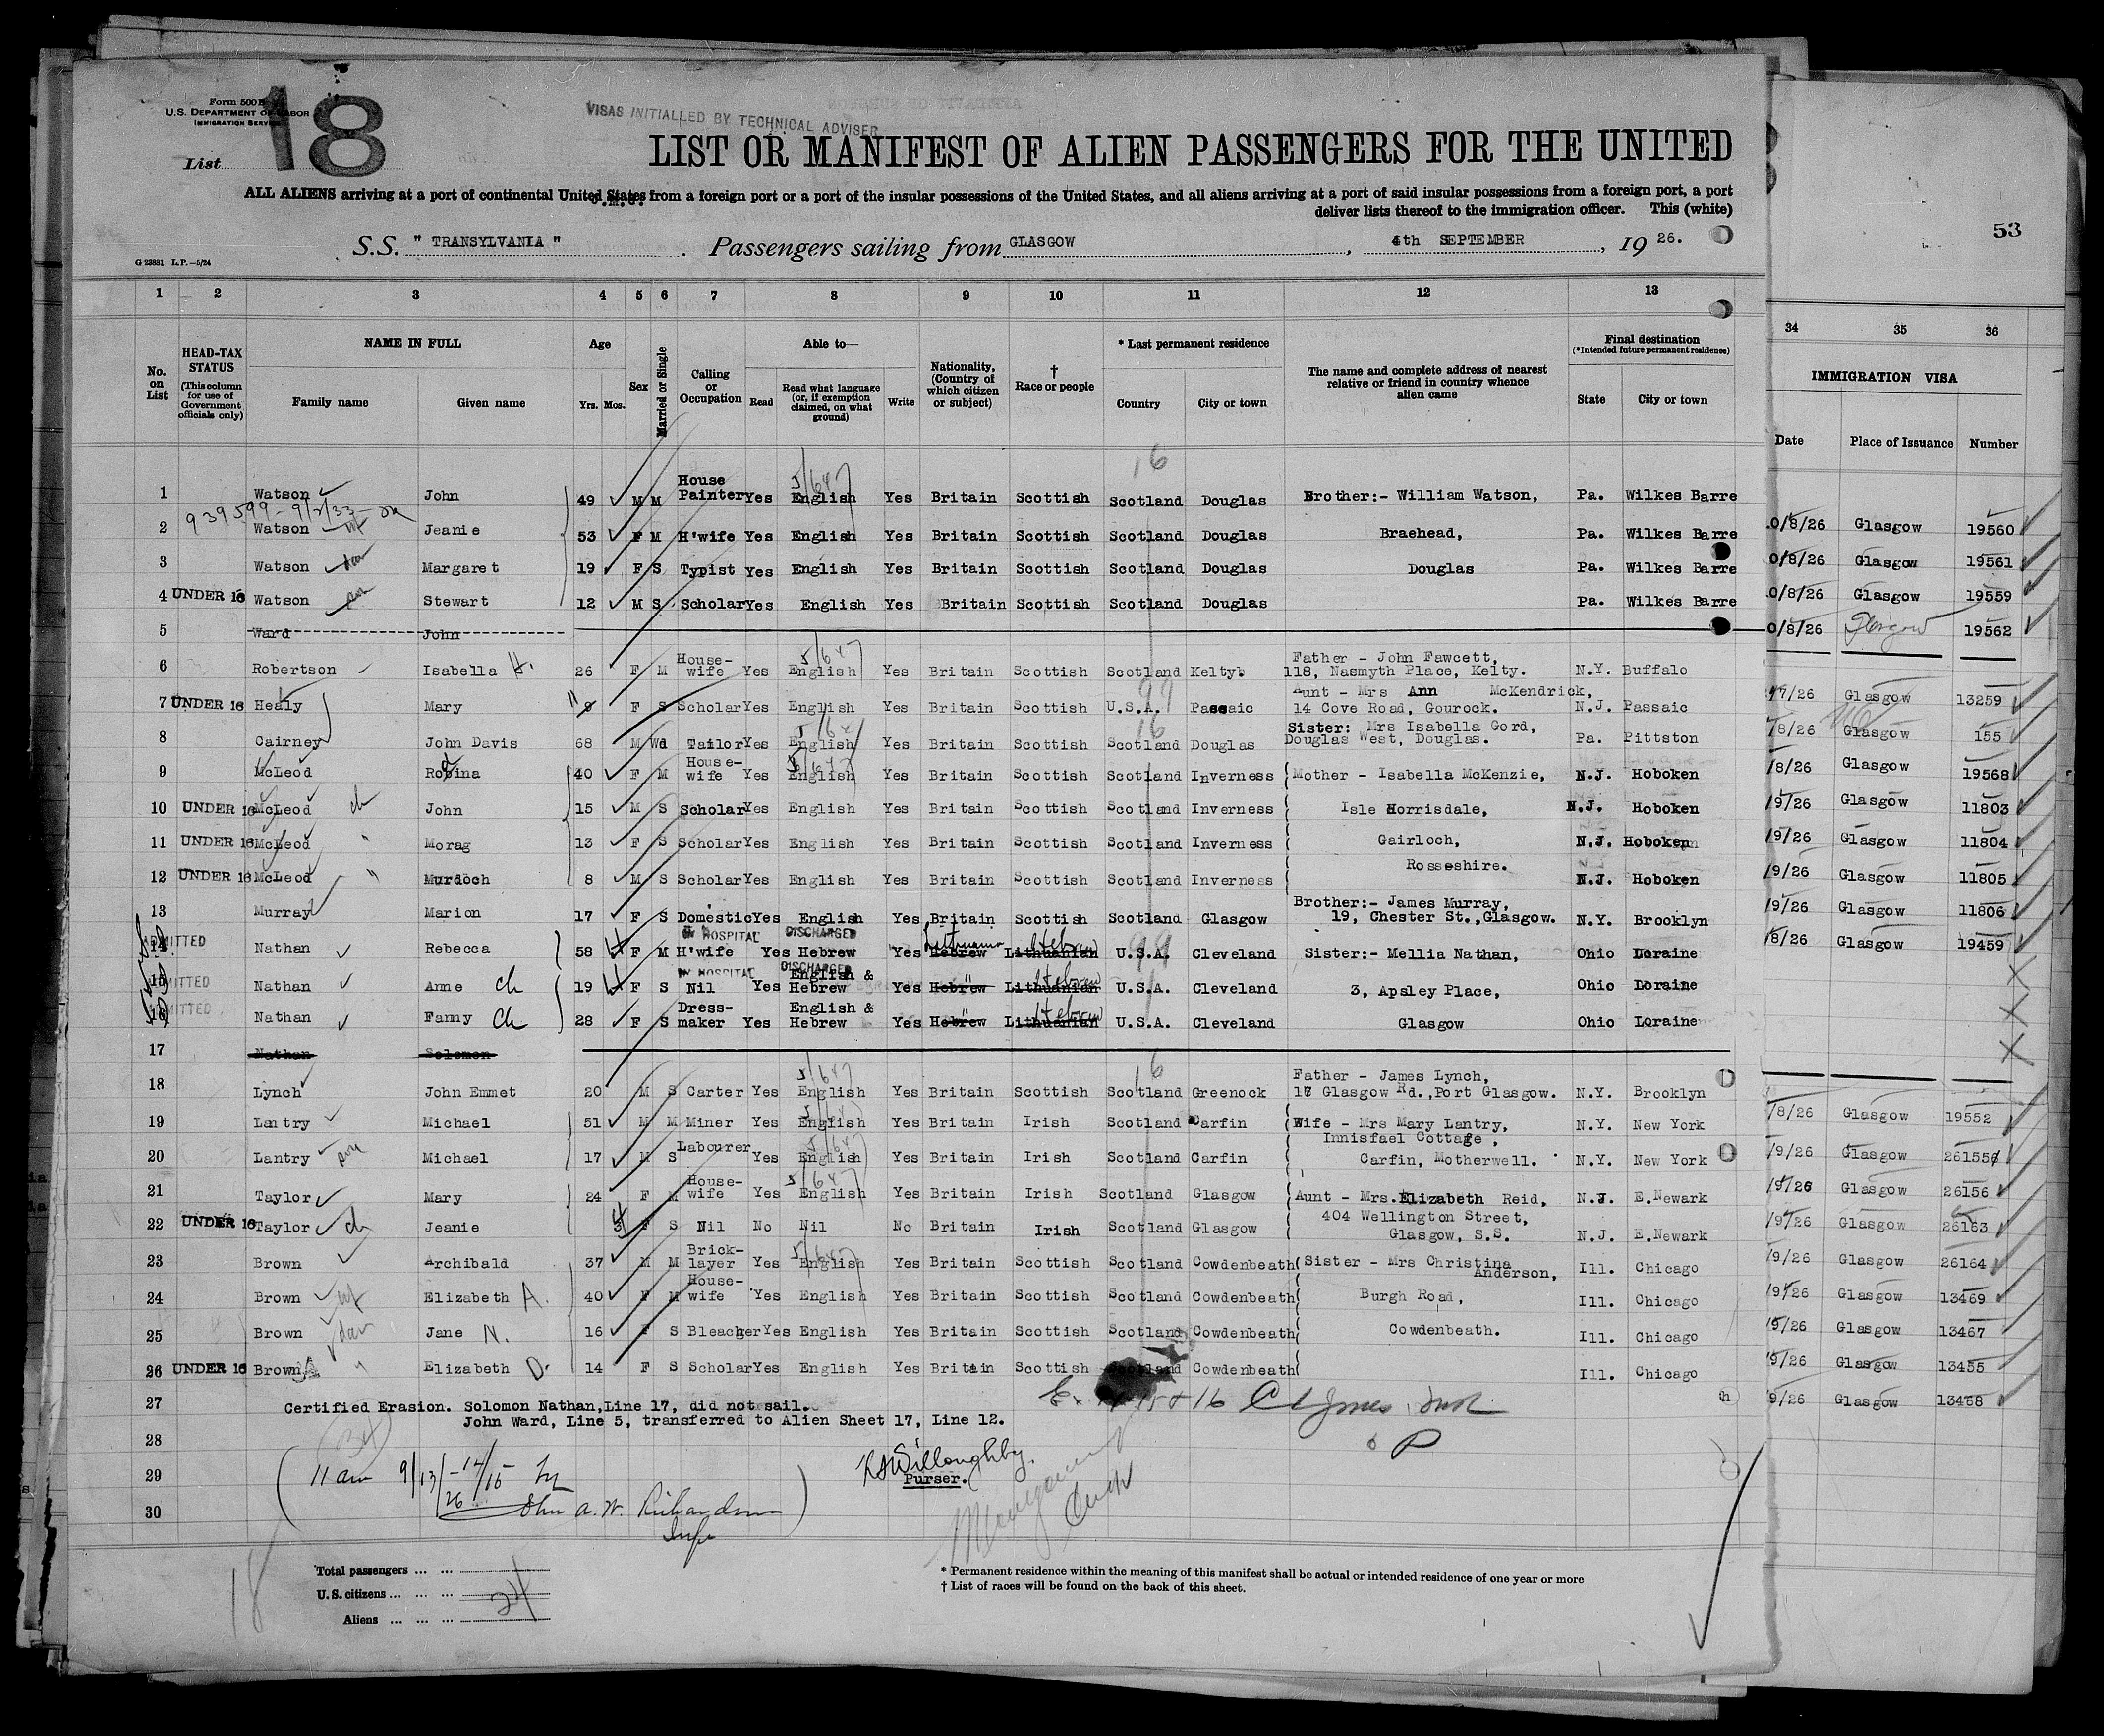 Form 500 B
U.S. DEPARTMENT OF LABOR
IMMIGRATION SERVICE
List 18
VISAS INITIALLED BY TECHNICAL ADVISER
LIST OR MANIFEST OF ALIEN PASSENGERS FOR THE UNITED
ALL ALIENS arriving at a port of continental United States from a foreign port or a port of the insular possessions of the United States, and all aliens arriving at a port of said insular possessions from a foreign port, a port
deliver lists thereof to the immigration officer. This (white)
53
S.S. " TRANSYLVANIA " . Passengers sailing from GLASGOW , 4th SEPTEMBER , 19 26.
G 23881 L.P.—5/24
1 2 3 4 5 6 7 8 9 10 11 12 13 34 35 36
No. on List
HEAD-TAX STATUS (This column for use of Government officials only)
NAME IN FULL
Family name Given name
Age Yrs. Mos.
Sex
Married or Single
Calling or Occupation
Able to—
Read Read what language (or, if exemption claimed, on what ground) Write
Nationality, (Country of which citizen or subject)
† Race or people
* Last permanent residence
Country City or town
The name and complete address of nearest relative or friend in country whence alien came
Final destination (*Intended future permanent residence)
State City or town
IMMIGRATION VISA
Date Place of Issuance Number
1 Watson John 49 M M House Painter Yes English Yes Britain Scottish Scotland Douglas Brother:- William Watson, Pa. Wilkes Barre
0/8/26 Glasgow 19560
2 Watson Jeanie 53 F M H'wife Yes English Yes Britain Scottish Scotland Douglas Braehead, Pa. Wilkes Barre
0/8/26 Glasgow 19561
3 Watson Margaret 19 F S Typist Yes English Yes Britain Scottish Scotland Douglas Douglas Pa. Wilkes Barre
0/8/26 Glasgow 19559
4 UNDER 16 Watson Stewart 12 M S Scholar Yes English Yes Britain Scottish Scotland Douglas Pa. Wilkes Barre
0/8/26 Glasgow 19562
5 Ward John
6 Robertson Isabella H. 26 F M House-wife Yes English Yes Britain Scottish Scotland Kelty. Father - John Fawcett, 118, Nasmyth Place, Kelty. N.Y. Buffalo
7/26 Glasgow 13259
7 UNDER 16 Healy Mary 9 F S Scholar Yes English Yes Britain Scottish U.S.A. Passaic Aunt - Mrs Ann McKendrick, 14 Cove Road, Gourock. N.J. Passaic
/8/26 Glasgow 155
8 Cairney John Davis 68 M Wd Tailor Yes English Yes Britain Scottish Scotland Douglas Sister: Mrs Isabella Gord, Douglas West, Douglas. Pa. Pittston
/8/26 Glasgow 19568
9 McLeod Robina 40 F M House-wife Yes English Yes Britain Scottish Scotland Inverness Mother - Isabella McKenzie, N.J. Hoboken
/9/26 Glasgow 11803
10 UNDER 16 McLeod ch John 15 M S Scholar Yes English Yes Britain Scottish Scotland Inverness Isle Horrisdale, N.J. Hoboken
/9/26 Glasgow 11804
11 UNDER 16 McLeod " Morag 13 F S Scholar Yes English Yes Britain Scottish Scotland Inverness Gairloch, N.J. Hoboken
/9/26 Glasgow 11805
12 UNDER 16 McLeod " Murdoch 8 M S Scholar Yes English Yes Britain Scottish Scotland Inverness Rossshire. N.J. Hoboken
/9/26 Glasgow 11806
13 Murray Marion 17 F S Domestic Yes English Yes Britain Scottish Scotland Glasgow Brother:- James Murray, 19, Chester St.,Glasgow. N.Y. Brooklyn
/8/26 Glasgow 19459
IN HOSPITAL DISCHARGED
14 ADMITTED Nathan Rebecca 58 F M H'wife Yes Hebrew Yes Hebrew Lithuania Lithuanian Hebrew U.S.A. Cleveland Sister:- Mellia Nathan, Ohio Loraine
IN HOSPITAL DISCHARGED
15 ADMITTED Nathan Anne ch 19 F S Nil Yes English & Hebrew Yes Hebrew " Lithuanian Hebrew U.S.A. Cleveland 3, Apsley Place, Ohio Loraine
16 ADMITTED Nathan Fanny ch 28 F S Dress-maker Yes English & Hebrew Yes Hebrew " Lithuanian Hebrew U.S.A. Cleveland Glasgow Ohio Loraine
17 Nathan Solomon
18 Lynch John Emmet 20 M S Carter Yes English Yes Britain Scottish Scotland Greenock Father - James Lynch, 17 Glasgow Rd.,Port Glasgow. N.Y. Brooklyn
/8/26 Glasgow 19552
19 Lantry Michael 51 M M Miner Yes English Yes Britain Irish Scotland Carfin Wife - Mrs Mary Lantry, Innisfael Cottage, N.Y. New York
/9/26 Glasgow 26155
20 Lantry Michael 17 M S Labourer Yes English Yes Britain Irish Scotland Carfin Carfin, Motherwell. N.Y. New York
/9/26 Glasgow 26156
21 Taylor Mary 24 F M House-wife Yes English Yes Britain Irish Scotland Glasgow Aunt - Mrs.Elizabeth Reid, N.J. E.Newark
/9/26 Glasgow 26163
22 UNDER 16 Taylor ch Jeanie F S Nil No Nil No Britain Irish Scotland Glasgow 404 Wellington Street, Glasgow, S.S. N.J. E.Newark
/9/26 Glasgow 26164
23 Brown Archibald 37 M M Brick-layer Yes English Yes Britain Scottish Scotland Cowdenbeath Sister - Mrs Christina Anderson, Ill. Chicago
/9/26 Glasgow 13469
24 Brown Elizabeth A. 40 F M House-wife Yes English Yes Britain Scottish Scotland Cowdenbeath Burgh Road, Ill. Chicago
/9/26 Glasgow 13467
25 Brown Jane N. 16 F S Bleacher Yes English Yes Britain Scottish Scotland Cowdenbeath Cowdenbeath. Ill. Chicago
/9/26 Glasgow 13455
26 UNDER 16 Brown Elizabeth D. 14 F S Scholar Yes English Yes Britain Scottish Scotland Cowdenbeath Ill. Chicago
/9/26 Glasgow 13468
27 Certified Erasion. Solomon Nathan,Line 17, did not sail.
John Ward, Line 5, transferred to Alien Sheet 17, Line 12.
28
29 11 am 9/13/26
Willoughby.
Purser.
30 John A. W. Richardson
Total passengers ... ...
U.S. citizens ... ... ... 24
Aliens ... ... ...
* Permanent residence within the meaning of this manifest shall be actual or intended residence of one year or more
† List of races will be found on the back of this sheet.
18